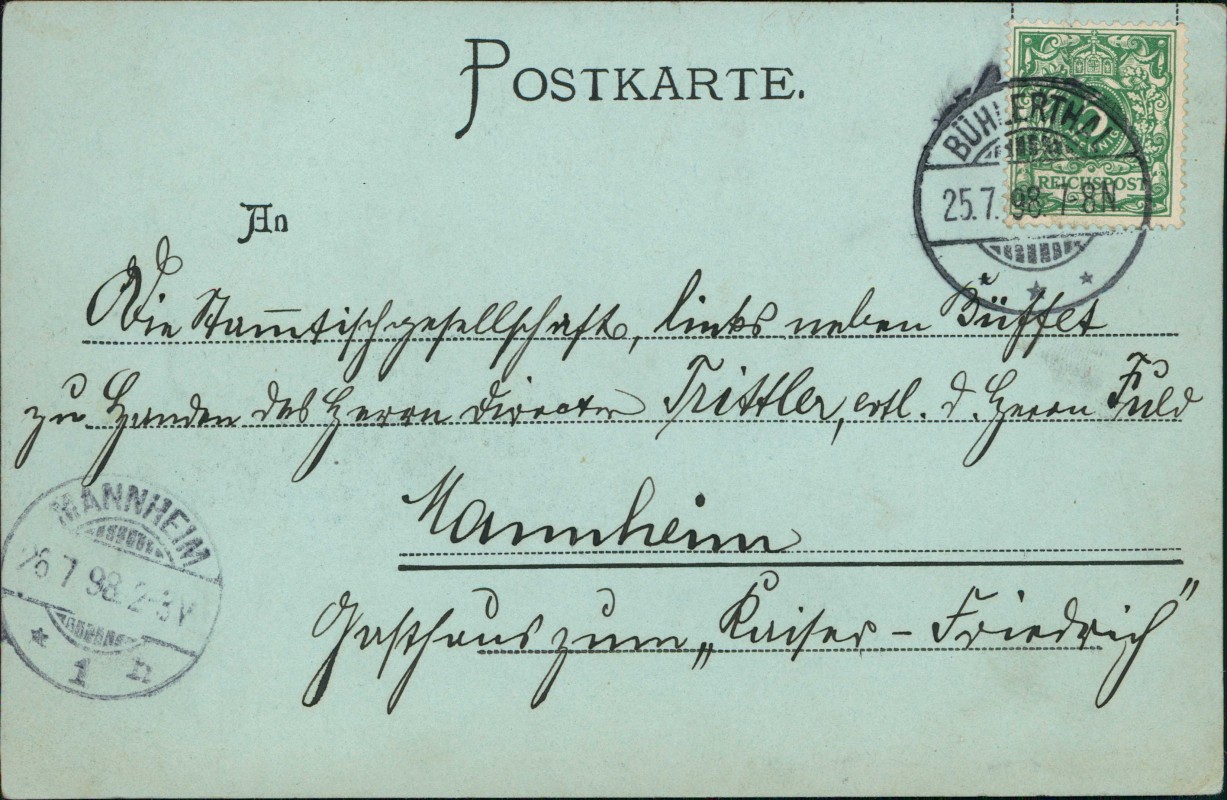 POSTKARTE.
BÜHLERTHAL
25.7.98.7-8N.
5
REICHSPOST
An
Die Stam̅tischgesellschaft, links neben Büffet
zu Handen des Herrn Director Trittler, evtl. d. Herrn Fuld
Mannheim
Gasthaus zum „Kaiser - Friedrich"
MANNHEIM
26 7 98. 2-3 V
1 n